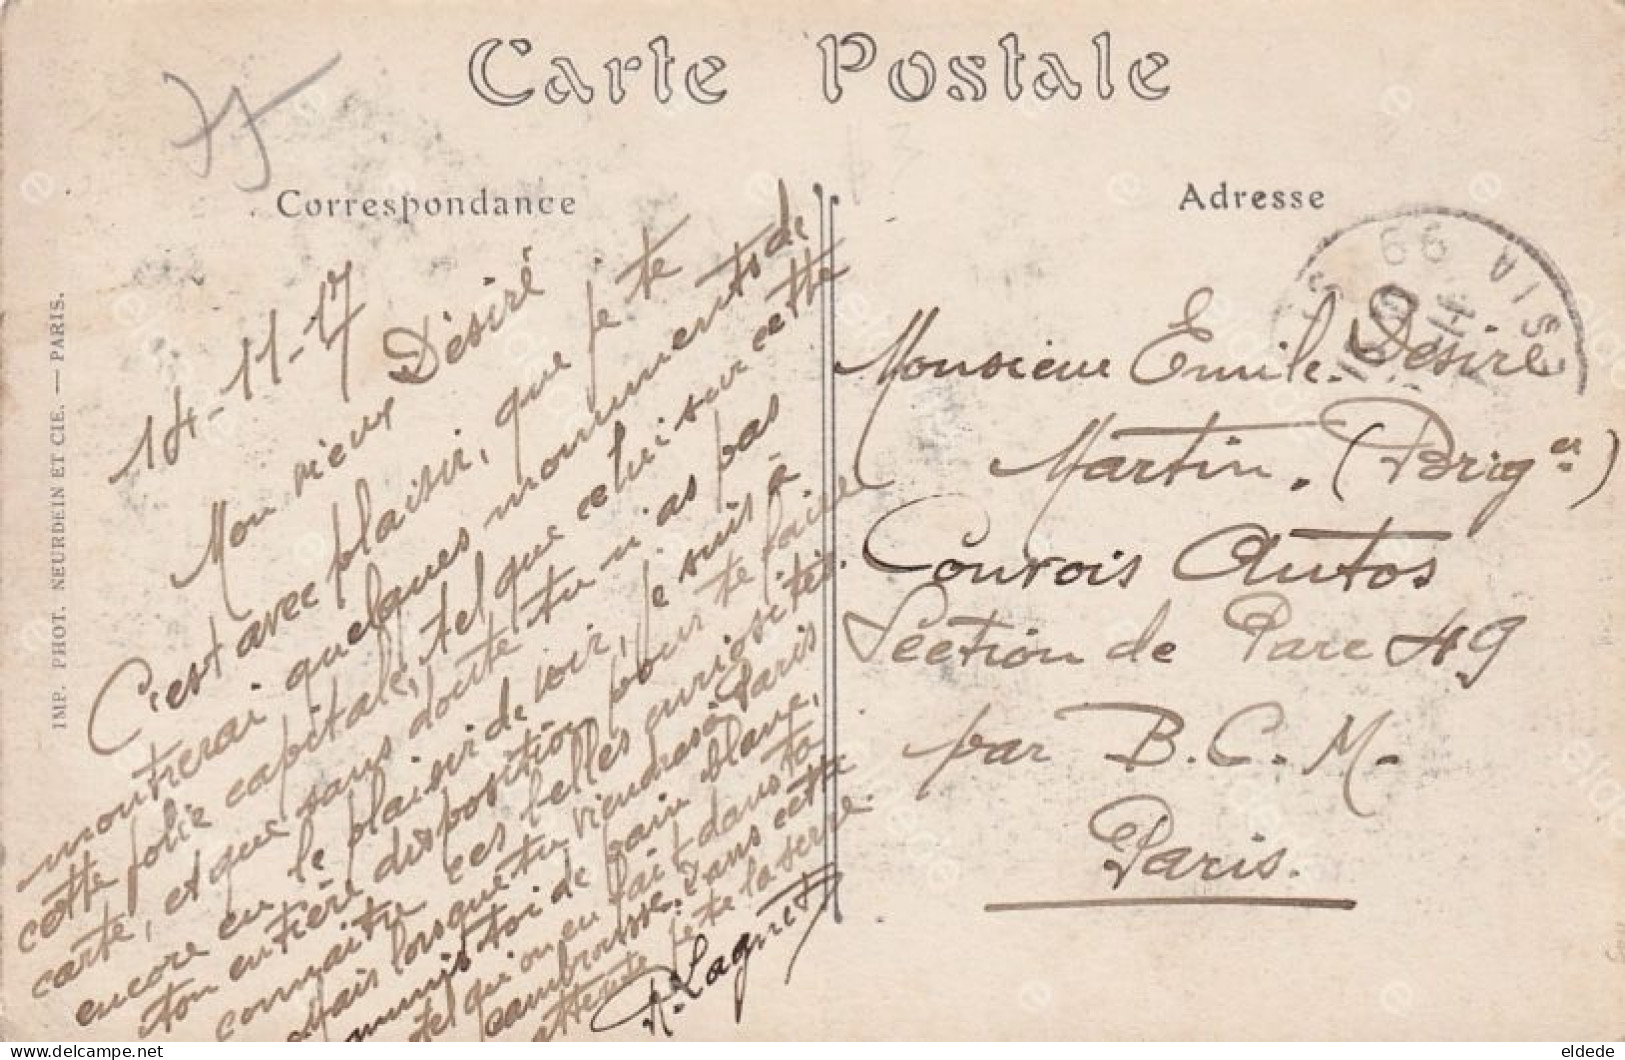 Carte Postale
Correspondance
Adresse
14-11-17
Mon vieux Désiré
C'est avec plaisir, que je te
montrerai quelques monuments de
cette jolie capitale, tel que celui sur cette
carte, et que sans doute tu n'as pas
encore eu le plaisir de voir, je suis à
ton entière disposition pour te faire
connaitre ces belles curiosités.
Mais lorsque tu viendras à Paris
munis toi de pain blanc,
tel qu'on en fait dans ta
cambrousse. Dans cette
attente je te la serre
R. Lagnet
Monsieur Emile. Désiré
Martin. (Briger)
Convois Autos
Section de Parc 49
par B.C.M.
Paris.
IMP. PHOT. NEURDEIN ET CIE. — PARIS.
https://www.delcampe.net
eldede